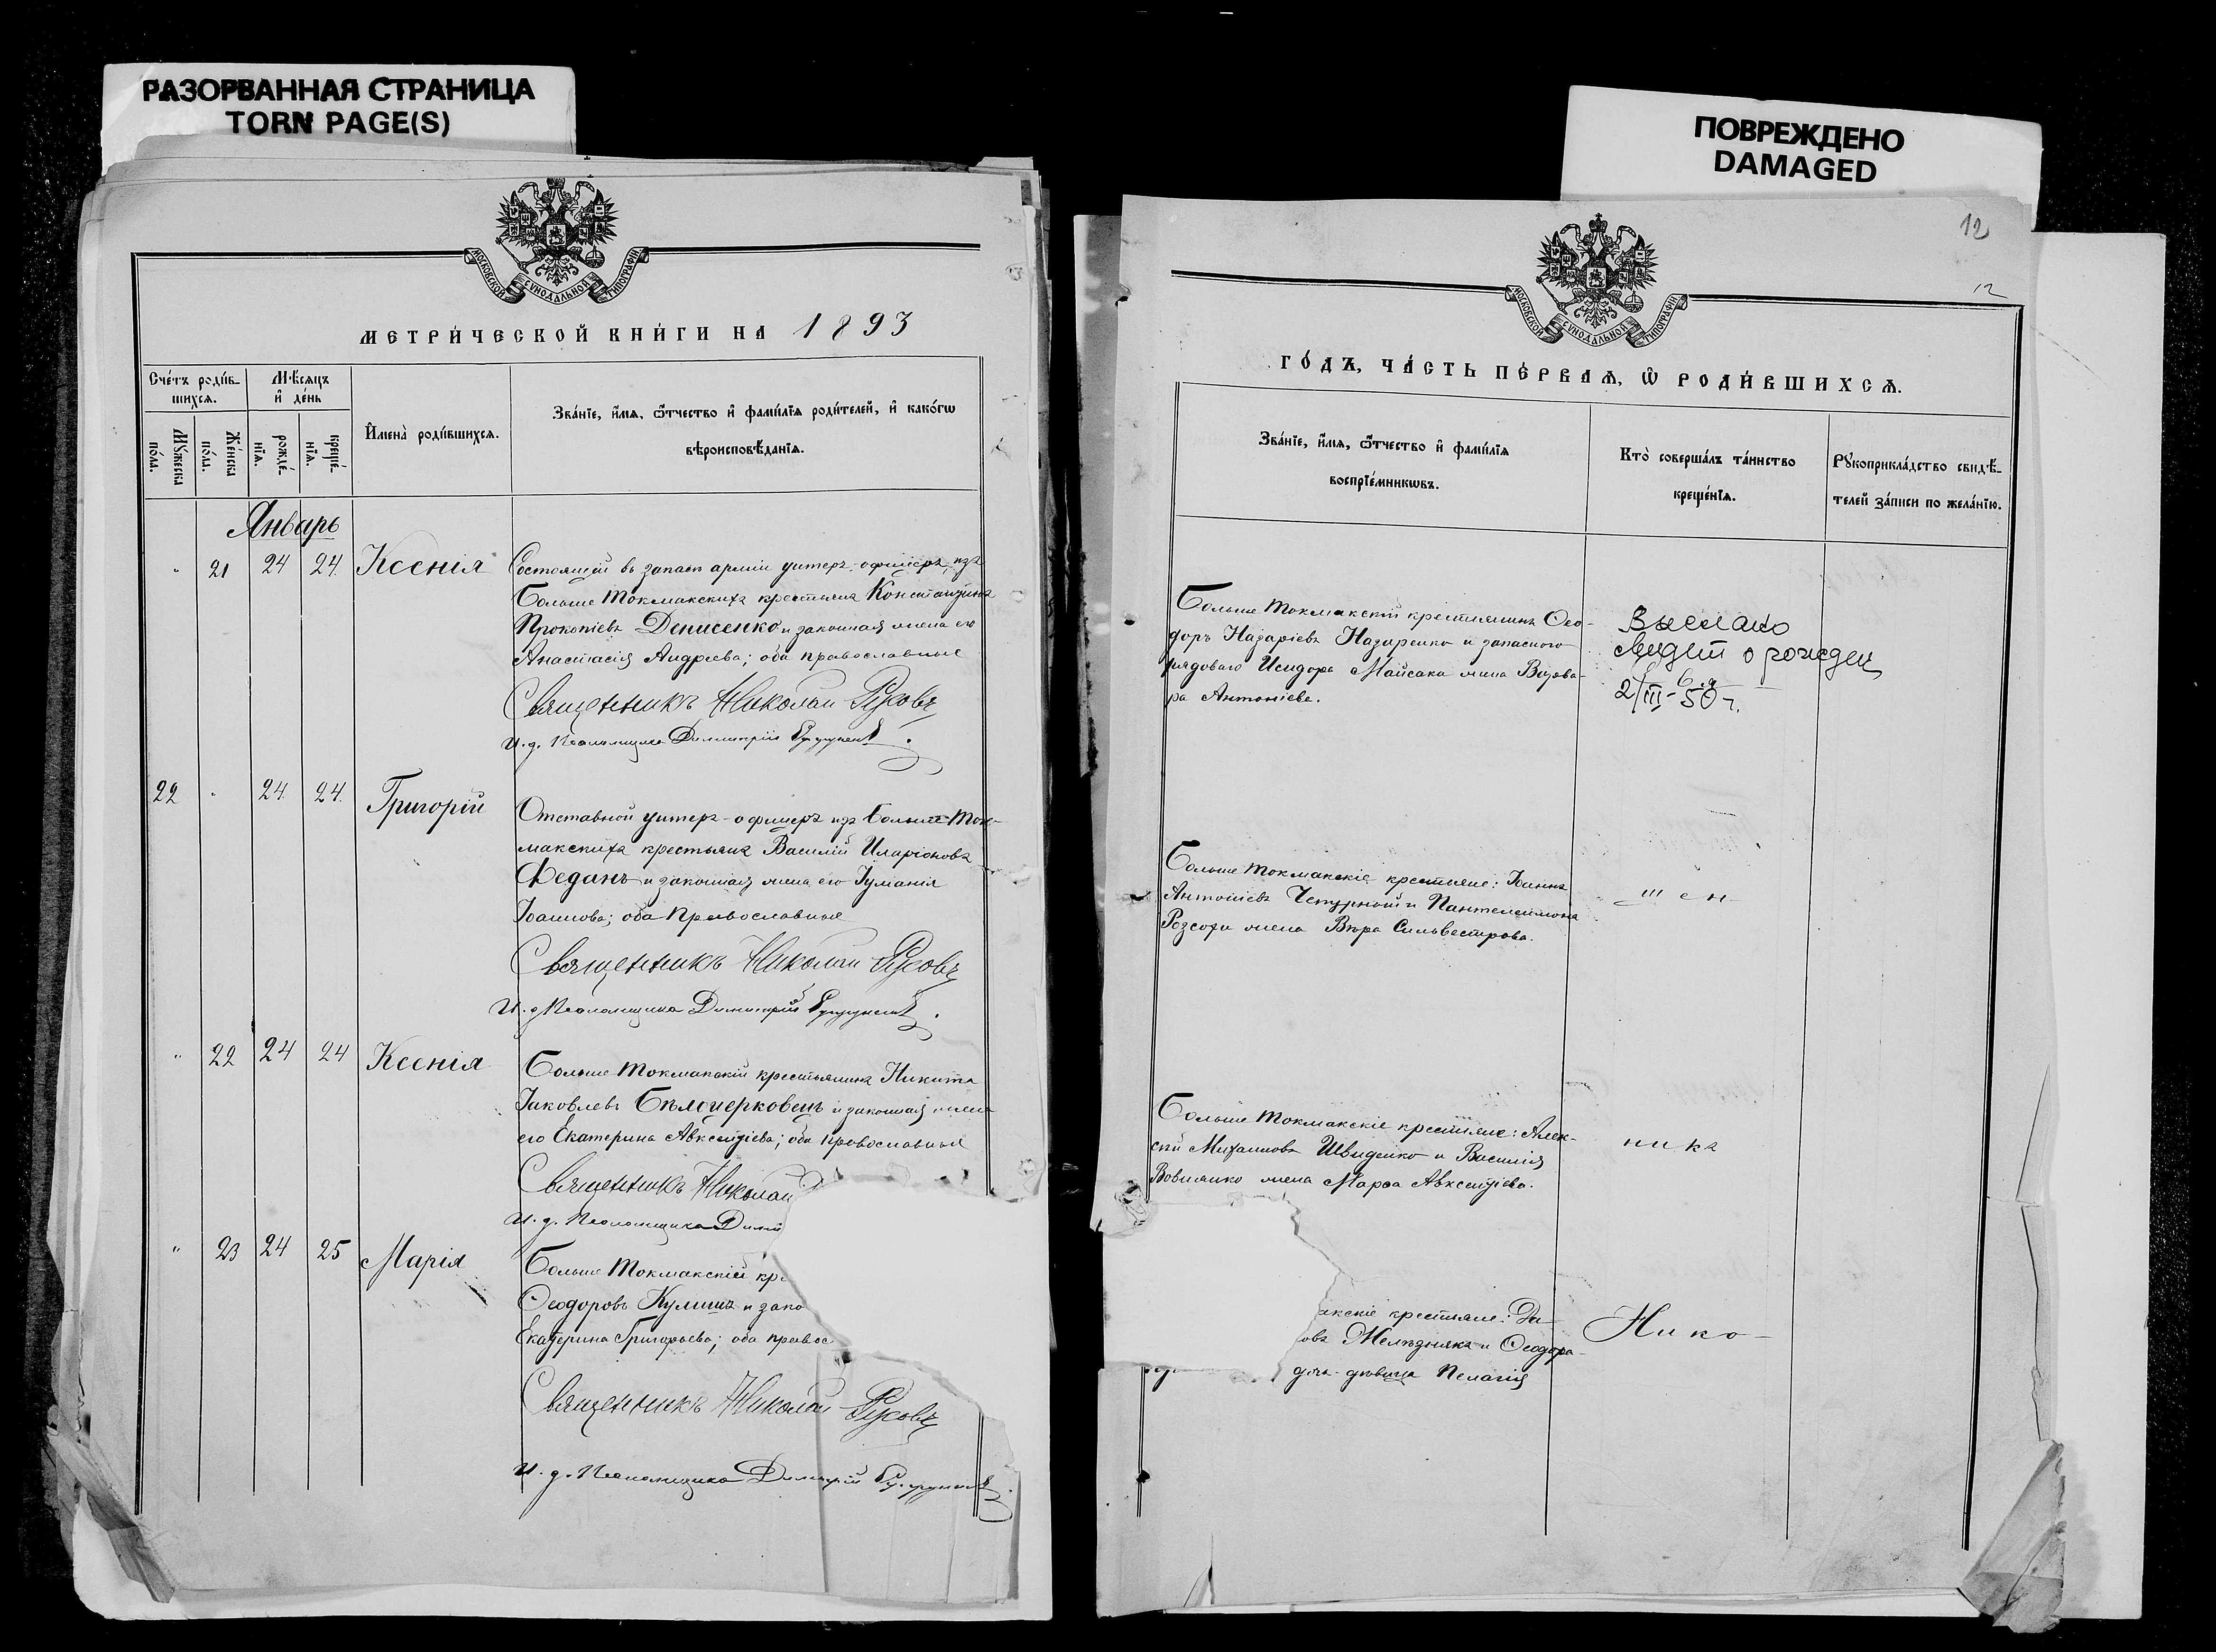 РАЗОРВАННАЯ СТРАНИЦА
TORN PAGE(S)
МОСКОВСКОЙ СУНОДАЛЬНОЙ ТИПОГРАФІИ
МЕТРИ́ЧЕСКОЙ КНИ́ГИ НА 1893
Сче́тъ роди́в-
шихсѧ.
Мѣ́сѧцъ
и҆ де́нь
И҆мена̀ роди́вшихсѧ.
Зва́нїе, и҆́мѧ, ѻ҆́тчество и҆ фами́лїѧ роди́телей, и҆ како́гѡ
вѣроисповѣ́данїѧ.
Мꙋ́жеска
по́ла.
Же́нска
по́ла.
рожде́-
нїѧ.
креще́-
нїѧ.
Январь
" 21 24 24. Ксенія
Состоящій въ запасѣ арміи унтеръ-офицеръ, изъ
Больше Токмакскихъ крестьянъ Константинъ
Прокопіевъ Денисенко и законная жена его
Анастасія Андреева; оба православные
Священникъ Николай Русовъ
И. д. Псаломщика Димитрій
22 " 24. 24. Григорій
Отставной унтеръ-офицеръ изъ Больше-Ток-
макскихъ крестьянъ Василій Иларіоновъ
Феданъ и законная жена его Іуманія
Іоаннова; оба Православные
Священникъ Николай Русовъ
И. д. Псаломщика Димитрій
" 22 24 24 Ксенія
Больше Токмакскій крестьянинъ Никита
Іаковлевъ Бѣлоцерковецъ и законная жена
его Екатерина Авксентіева; оба православные
Священникъ Николай
И. д. Псаломщика Дими
" 23 24 25 Марія
Больше Токмакскій кре
Ѳеодоровъ Кулишъ и зако
Екатерина Григорьева; оба правос
Священникъ Николай Русовъ
И. д. Псаломщика Димитрій
ПОВРЕЖДЕНО
DAMAGED
12
12
МОСКОВСКОЙ СУНОДАЛЬНОЙ ТИПОГРАФІИ
ГО́ДЪ, ЧА́СТЬ ПЕ́РВАѦ, Ѡ҆ РОДИ́ВШИХСѦ.
Зва́нїе, и҆́мѧ, ѻ҆́тчество и҆ фами́лїѧ
воспрїе́мникѡвъ.
Кто̀ соверша́лъ та́инство
креще́нїѧ.
Рꙋкоприкла́дство свидѣ́-
телей за́писи по жела́нїю.
Больше Токмакскій крестьянинъ Ѳео-
доръ Назаріевъ Назаренко и запасного
рядоваго Исидора Майсака жена Варва-
ра Антоніева.
Выслано
свидет о рожден
2/III-50 г.
Больше Токмакскіе крестьяне: Іоаннъ
Антоніевъ Чепурный и Пантелеимона
Розсохи жена Вѣра Сильвестрова.
щен
Больше Токмакскіе крестьяне: Алек-
сѣй Михаиловъ Швиденко и Василія
Вовнянко жена Марѳа Авксентіева.
ника
акскіе крестьяне: Да-
овъ Желѣзнякъ и Ѳеодора
дочь-дѣвица Пелагія
Нико-